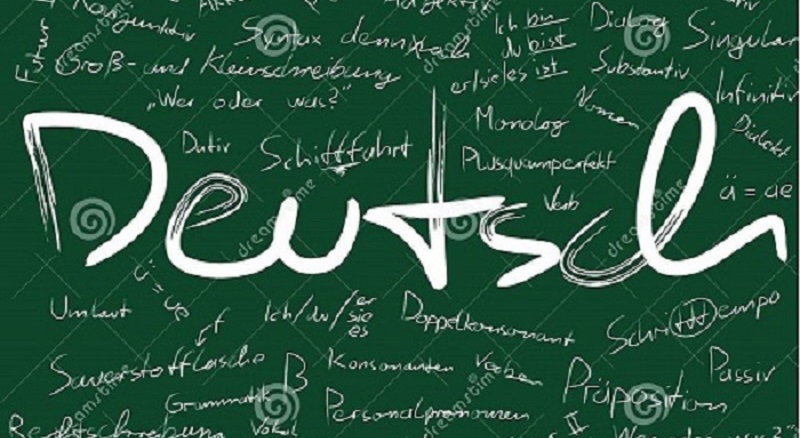 Konjunktiv
Syntax dennoch
Ich bin
du bist
er/sie/es ist
Dialog
Singular
Futur
Groß- und Kleinschreibung
Substantiv
Infinitiv
„Wer oder was?"
Monolog
Nomen
Dialekt
Deutsch
Dativ
Schifffahrt
Plusquamperfekt
Verb
ä = ae
ü = ue
Umlaut
Ich/du/er
sie
es
Doppelkonsonant
Schritttempo
Sauerstoffflasche
ß
Konsonanten
Verben
Präposition
Passiv
Grammatik
Personalpronomen
Rechtschreibung
Vokal
dreamstime